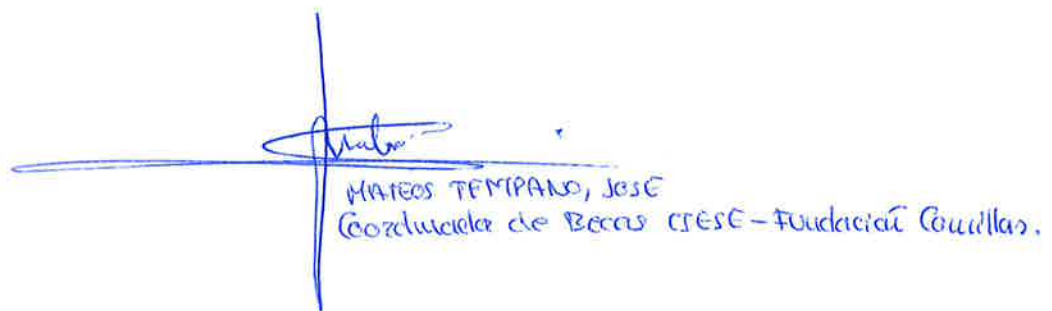 MATEOS TEMPRANO, JOSÉ
Coordinador de Becas CIESE-Fundación Comillas.